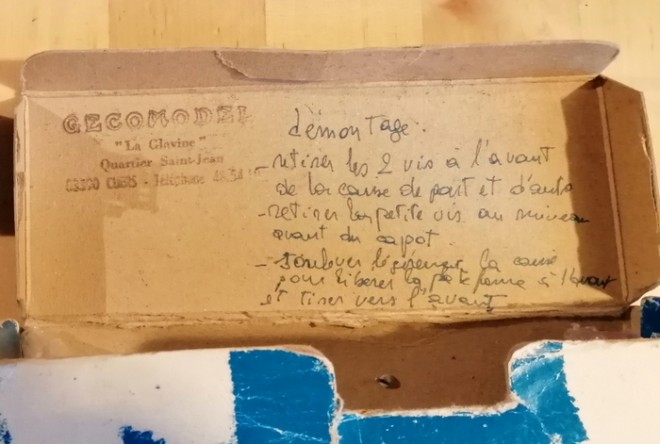 GECOMODEL
"La Glavine"
Quartier Saint-Jean
83390 CUERS - Téléphone
démontage.
- retirer les 2 vis à l'avant
de la caisse de part et d'autre
- retirer la petite vis au niveau
avant du capot
- soulever légèrement la caisse
pour libérer la patte à l'avant
et tirer vers l'avant